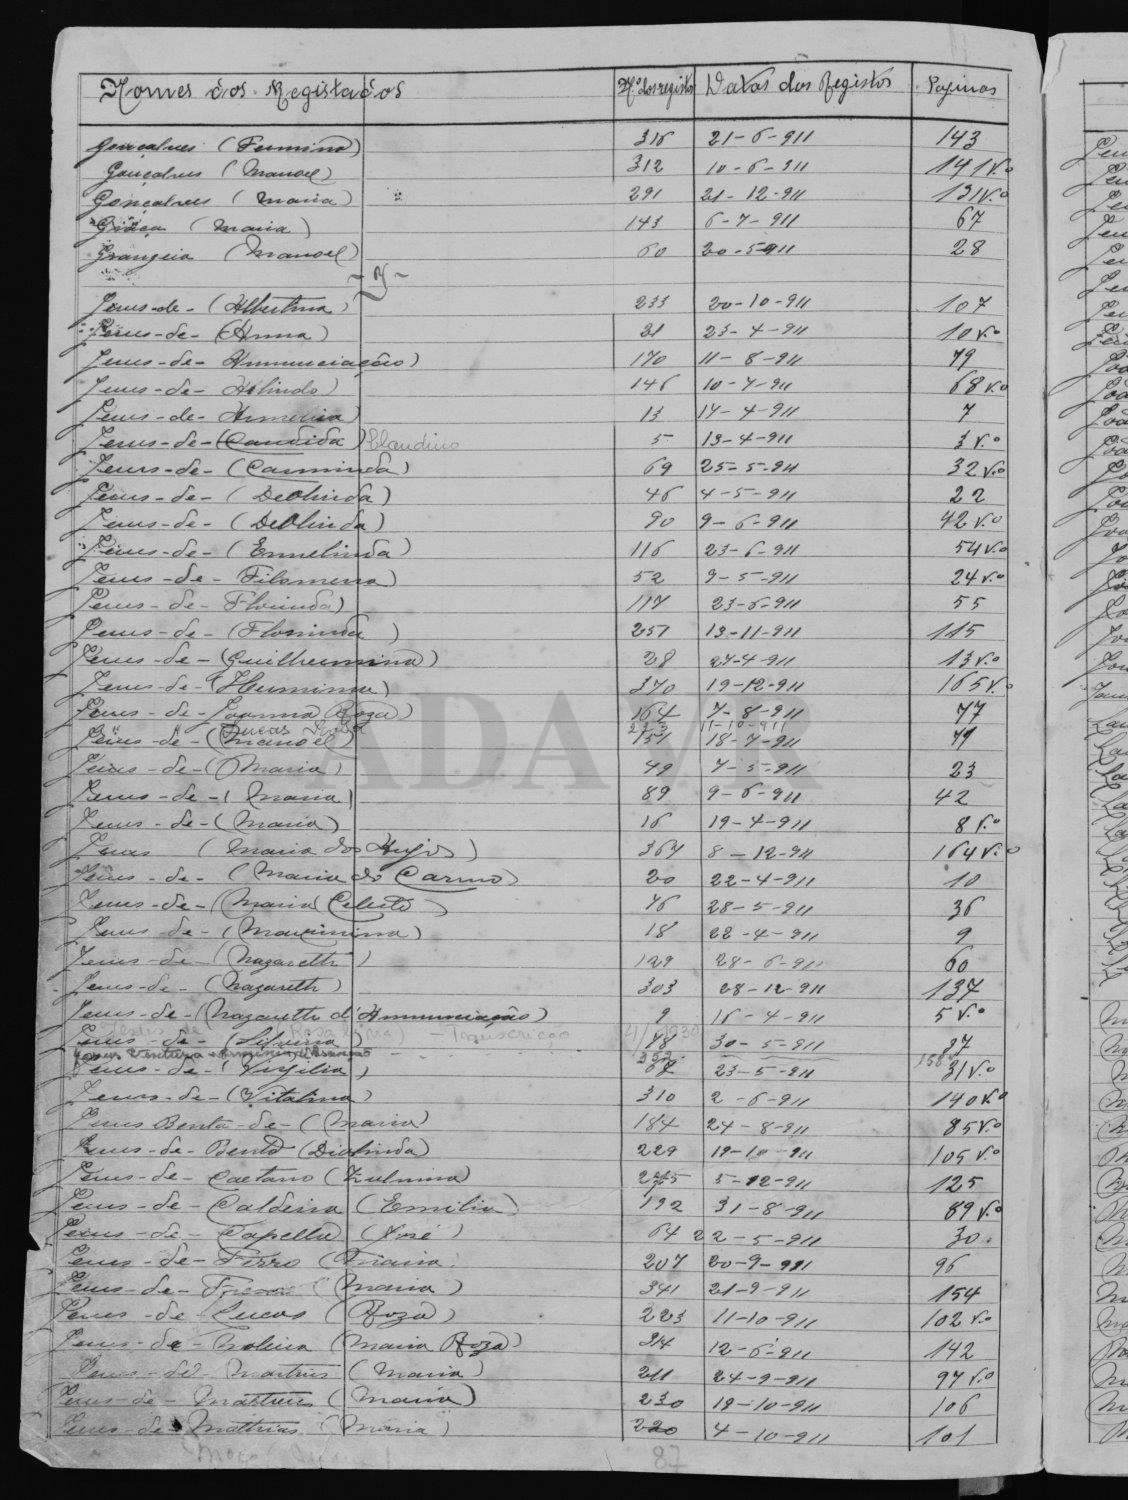 Nomes dos Registados Nº dos registos Datas dos Registos Paginas
Gonçalves (Firmina) 316 21-6-911 143
Gonçalves (Manoel) 312 10-6-911 141 v.º
Gonçalves (Maria) 291 21-12-911 131 v.º
Graça (Maria) 143 6-7-911 67
Grangeia (Manoel) 60 20-5-911 28
- J -
Jesus-de- (Albertina) 233 20-10-911 107
Jesus-de- (Anna) 21 23-4-911 10 v.º
Jesus-de- Annunciação) 170 11-8-911 79
Jesus-de- Arlindo) 146 10-7-911 68 v.º
Jesus-de- America) 13 17-4-911 7
Jesus-de-(Candida) Claudino 5 13-4-911 3 v.º
Jesus-de- (Carminda) 69 25-5-911 32 v.º
Jesus-de- (Deolinda) 46 4-5-911 22
Jesus-de- (Deolinda) 90 9-6-911 42 v.º
Jesus-de- (Ermelinda) 116 23-6-911 54 v.º
Jesus-de- Filomena) 52 9-5-911 24 v.º
Jesus-de- Florinda) 117 23-6-911 55
Jesus-de- (Florinda) 251 13-11-911 115
Jesus-de-(Guilhermina) 28 27-4-911 13 v.º
Jesus-de-(Herminia) 370 19-12-911 165 v.º
Jesus-de-Joanna Roza) 164 7-8-911 77
" " Lucas 223 11-10-911
Jesus-de-(Manoel) 151 18-7-911 71
Jesus-de-(Maria) 49 7-5-911 23
Jesus-de-(Maria) 89 9-6-911 42
Jesus-de-(Maria) 16 19-4-911 8 v.º
Jesus (Maria dos Anjos) 367 8-12-911 164 v.º
Jesus-de- (Maria do Carmo) 20 22-4-911 10
Jesus-de-(Maria Celeste) 76 28-5-911 36
Jesus-de-(Maximina) 18 22-4-911 9
Jesus-de- (Nazareth) 129 28-6-911 60
Jesus-de- (Nazareth) 303 28-12-911 137
Jesus-de-(Nazareth d'Annunciação) 9 16-4-911 5 v.º
Jesus de Rosa - Transcrição 1930
Jesus-de- (Silveria) 78 30-5-911 37
Jesus Ventura 353 158
Jesus-de- (Virgilia) 67 23-5-911 31 v.º
Jesus-de-(Vitalina) 310 2-6-911 140 v.º
Jesus Bento-de-(Maria) 184 24-8-911 85 v.º
Jesus-de-Bento (Diolinda) 229 19-10-911 105 v.º
Jesus-de-Caetano (Zulmira) 275 5-12-911 125
Jesus-de-Caldeira (Emilia) 192 31-8-911 89 v.º
Jesus-de-Capella (José) 64 22-5-911 30
Jesus-de-Ferro (Maria 207 20-9-911 96
Jesus-de- (Maria) 341 21-9-911 154
Jesus-de-Lucas (Roza) 223 11-10-911 102 v.º
Jesus-de- (Maria Roza) 314 12-6-911 142
Jesus-de-Martins (Maria) 211 24-9-911 97 v.º
Jesus-de-Martins (Maria) 230 19-10-911 106
Jesus-de-Mathias (Maria) 220 4-10-911 101
87
ADAVR